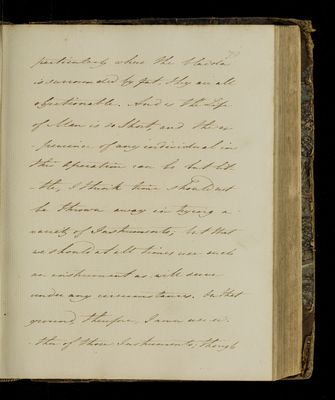 particularly when the Bladder
is surrounded by fat, they are all
objectionable. And as the Life
of Man is so Short, and the ex
perience of any individual in
this Operation can be but lit
tle, I think time should not
be thrown away in trying a
variety of Instruments, but that
we should at all times use such
an instrument as will serve
under any circumstances. On that
ground, therefore, I never use ei
ther of those Instruments, though